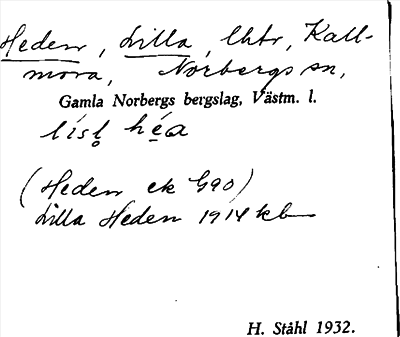 Heden, Lilla, lhtr, Kall-
mora, Norbergs sn,
Gamla Norbergs bergslag, Västm. l.
lísḷ hé̤a
(Heden ek G90)
Lilla Heden 1914 kb
H. Ståhl 1932.